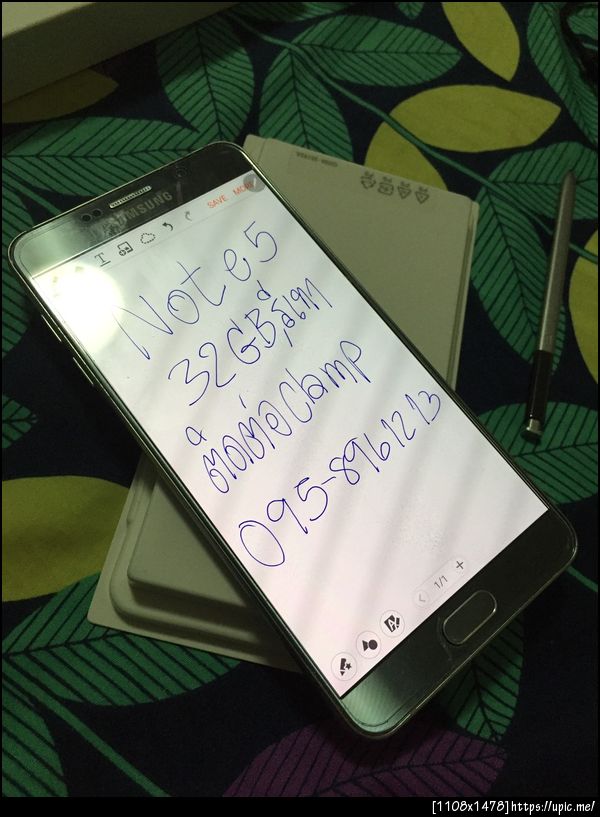 SAMSUNG
T SAVE MORE
Note 5
32GB, สีเทา
ติดต่อ Clamp
095-8961213
1/1 +
[1108x1478]https://upic.me/